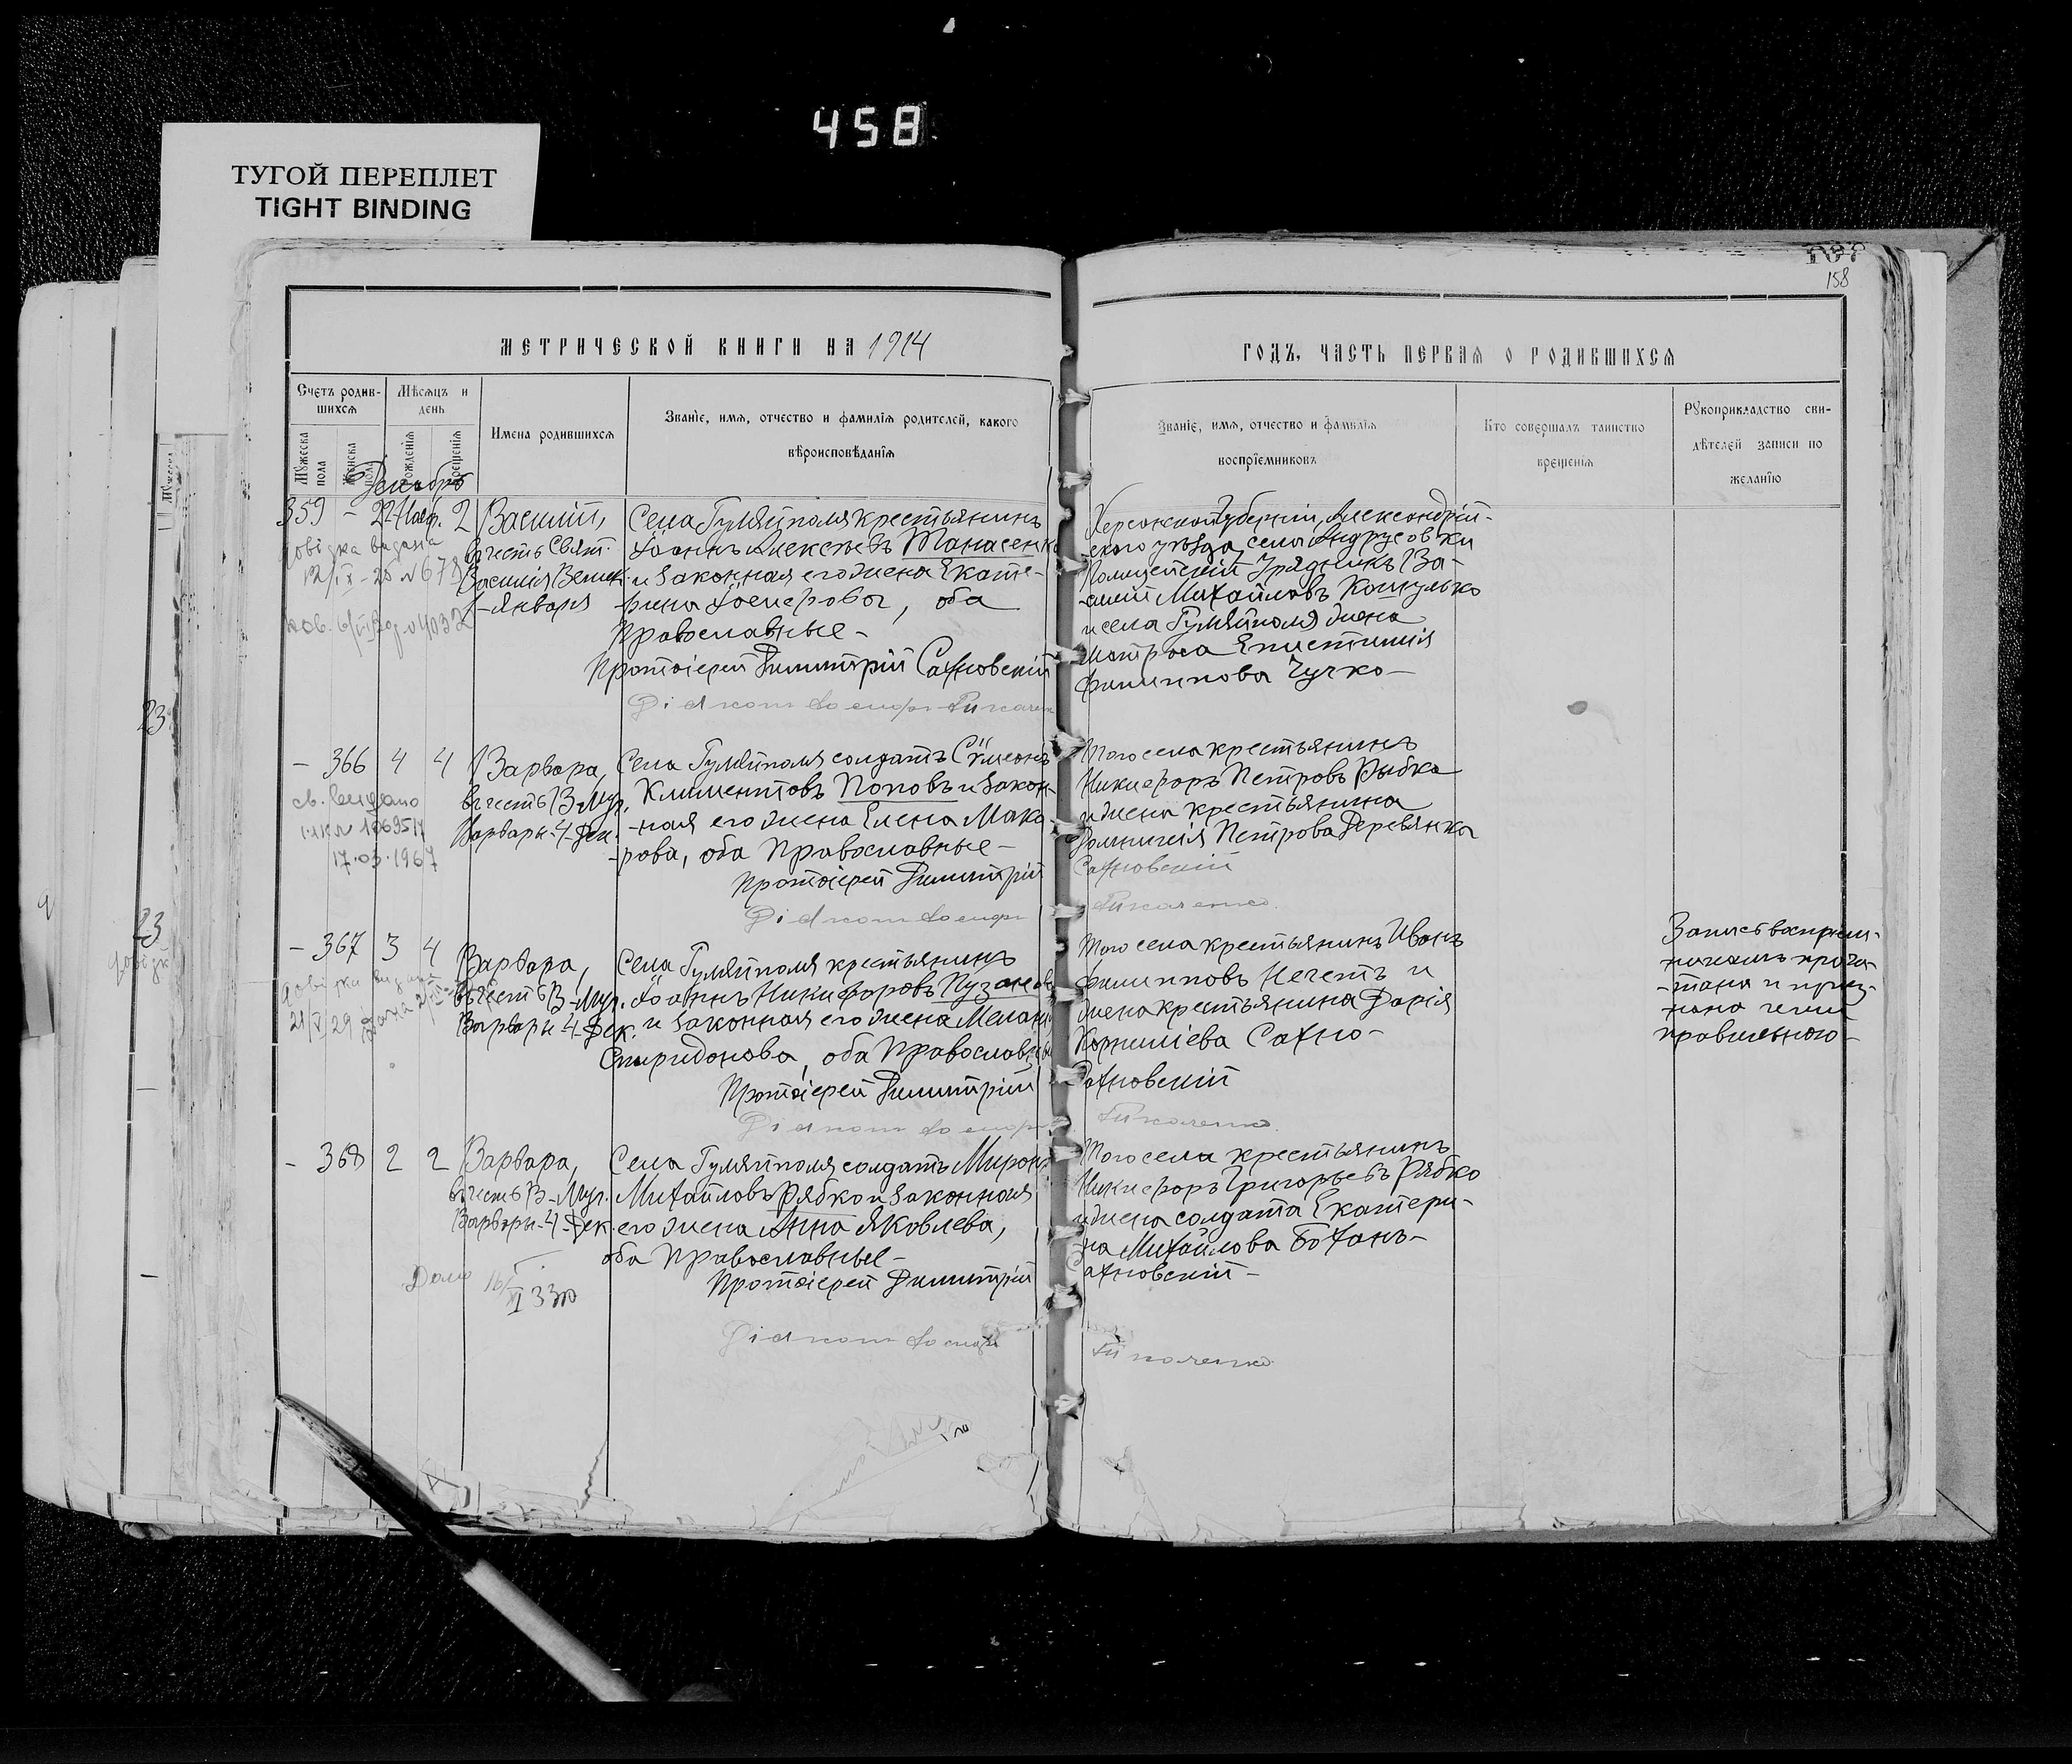 458
ТУГОЙ ПЕРЕПЛЕТ
TIGHT BINDING
158
МЕТРИЧЕСКОЙ КНИГИ НА 1914
ГОДЪ, ЧАСТЬ ПЕРВАЯ О РОДИВШИХСЯ
Счетъ родив-
шихся
Мѣсяцъ и
день
Мужеска
пола
Женска
пола
рожденія
крещенія
Имена родившихся
Званіе, имя, отчество и фамилія родителей, какого
вѣроисповѣданія
Званіе, имя, отчество и фамилія
воспріемниковъ
Кто совершалъ таинство
крещенія
Рукоприкладство сви-
дѣтелей записи по
желанію
Декабрь
359 - 22 Нояб. 2
Василій,
въ честь Свят.
Василія Велик.
1-Января
Довідка видана
12/IX-25 №673
Села Гуляйполя крестьянинъ
Іоаннъ Алексѣевъ Танасенко
и законная его жена Екате-
рина, оба
Православные-
Протоіерей Димитрій Сахновскій
Херсонской Губерніи, Александрій-
скаго уѣзда, села Андрусовки
Полицейскій Урядникъ Ва-
силій Михайловъ Кошулько
и села Гуляйполя жена
матроса Епистимія
Филиппова Чучко-
- 366 4 4
Варвара,
въ честь В-Муч.
Варвары-4-Дек.
17.03.1967
Села Гуляйполя солдатъ Сѵмеонъ
Климентовъ Поповъ и закон-
ная его жена Елена Мака-
рова, оба Православные-
Протоіерей Димитрій
Того села крестьянинъ
Никифоръ Петровъ Рыбка
и жена крестьянина
Домникія Петрова Деревянка
Сахновскій
- 367 3 4
Варвара,
въ честь В-Муч.
Варвары-4-Дек.
Довідка видана
21/V 29
Села Гуляйполя крестьянинъ
Іоаннъ Никифоровъ
и законная его жена Меланія
Спиридонова, оба Православные
Протоіерей Димитрій
Того села крестьянинъ Иванъ
Филипповъ Нечетъ и
жена крестьянина Дарія
Корниліева Сахно-
Сахновскій
Запись воспріем-
никамъ прочи-
-тана и приз-
нана ими
правильною-
- 368 2 2
Варвара,
въ честь В-Муч.
Варвары-4-Дек.
Села Гуляйполя солдатъ Миронъ
Михайловъ Рябко и законная
его жена Анна Яковлева,
оба Православные-
Протоіерей Димитрій
Того села крестьянинъ
Никифоръ Григорьевъ Рябко
и жена солдата Екатери-
на Михайлова Боханъ-
Сахновскій-
23
23